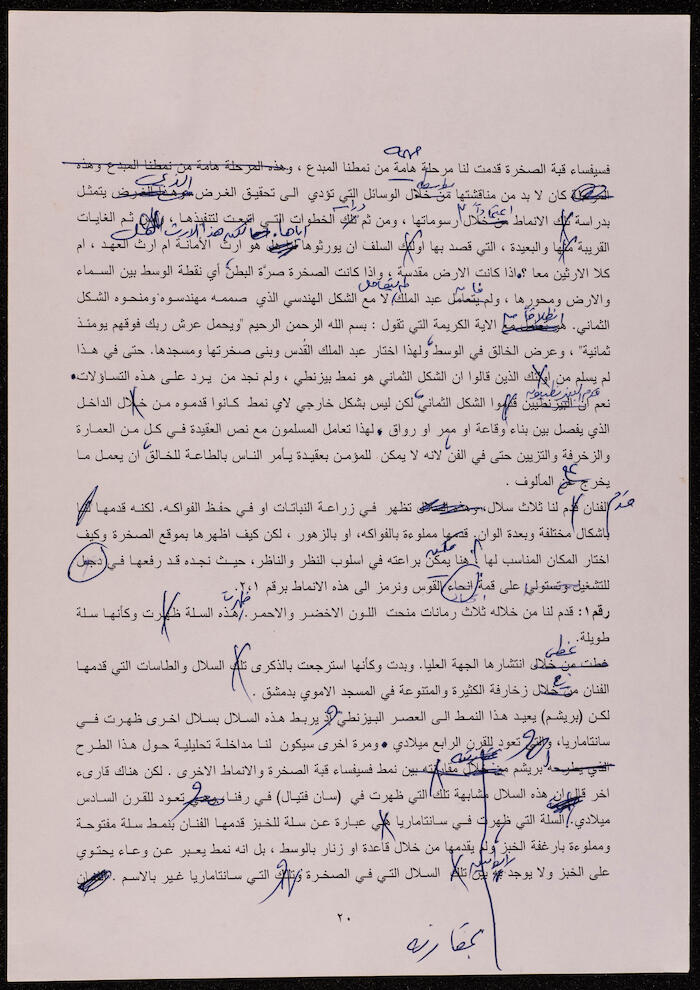 مهمة
فسيفساء قبة الصخرة قدمت لنا مرحلة هامة من نمطنا المبدع ، وهذه المرحلة هامة من نمطنا المبدع وهذه
بواسطة الذي
كان لا بد من مناقشتها من خلال الوسائل التي تؤدي الى تحقيق الغرض الغرض يتمثل
دراسة
بدراسة تلك الانماط من خلال رسوماتها ، ومن ثم تلك الخطوات التي اتبعت لتنفيذها ، ثم الغايات
القريبة منها والبعيدة ، التي قصد بها اولئك السلف ان يورثوها هو ارث الأمانة ام ارث العهد ، ام
كلا الارثين معا ؟ واذا كانت الارض مقدسة ، واذا كانت الصخرة صرّة البطن أي نقطة الوسط بين السماء
والارض ومحورها ، ولم يتعامل عبد الملك لا مع الشكل الهندسي الذي صممه مهندسوه ومنحوه الشكل
انطلاقا من
الثماني. الاية الكريمة التي تقول : بسم الله الرحمن الرحيم "ويحمل عرش ربك فوقهم يومئذ
ثمانية" ، وعرض الخالق في الوسط ولهذا اختار عبد الملك القُدس وبنى صخرتها ومسجدها. حتى في هذا
لم يسلم من اولئك الذين قالوا ان الشكل الثماني هو نمط بيزنطي ، ولم نجد من يرد على هذه التساؤلات.
نعم ان البيزنطيين قدموا الشكل الثماني لكن ليس بشكل خارجي لاي نمط كانوا قدموه من خلال الداخل
الذي يفصل بين بناء وقاعة او ممر او رواق . لهذا تعامل المسلمون مع نص العقيدة في كل من العمارة
والزخرفة والتزيين حتى في الفن لانه لا يمكن للمؤمن بعقيدة يأمر الناس بالطاعة للخالق ان يعمل ما
يخرج عن المألوف .
الفنان قدم لنا ثلاث سلال، تظهر في زراعة النباتات او في حفظ الفواكه. لكنه قدمها لنا
باشكال مختلفة وبعدة الوان. قدمها مملوءة بالفواكه، او بالزهور ، لكن كيف اظهرها بموقع الصخرة وكيف
اختار المكان المناسب لها ؟ هنا يمكن براعته في اسلوب النظر والناظر، حيث نجده قد رفعها في دجل
للتشغيل وتستولي على قمة انحاء القوس ونرمز الى هذه الانماط برقم ٢،١.
ظهرت
رقم١: قدم لنا من خلاله ثلاث رمانات منحت اللون الاخضر والاحمر. هذه السلة ظهرت وكأنها سلة
طويلة.
غطى
غطت من خلال انتشارها الجهة العليا. وبدت وكأنها استرجعت بالذكرى تلك السلال والطاسات التي قدمها
الفنان من خلال زخارفة الكثيرة والمتنوعة في المسجد الاموي بدمشق .
لكن (بريشم) يعيد هذا النمط الى العصر البيزنطي يربط هذه السلال بسلال اخرى ظهرت في
سانتماريا، والتي تعود للقرن الرابع ميلادي . ومرة اخرى سيكون لنا مداخلة تحليلية حول هذا الطرح
الذي يطرحه بريشم من خلال مقارنته بين نمط فسيفساء قبة الصخرة والانماط الاخرى . لكن هناك قارىء
اخر قال ان هذه السلال مشابهة تلك التي ظهرت في (سان فتيال) في رفنا تعود للقرن السادس
ميلادي. السلة التي ظهرت في سانتماريا هي عبارة عن سلة للخبز قدمها الفنان بنمط سلة مفتوحة
ومملوءة بارغفة الخبز ولم يقدمها من خلال قاعدة او زنار بالوسط ، بل انه نمط يعبر عن وعاء يحتوي
على الخبز ولا يوجد بين تلك السلال التي في الصخرة وتلك التي سانتماريا غير بالاسم .
٢٠
بمقارنة